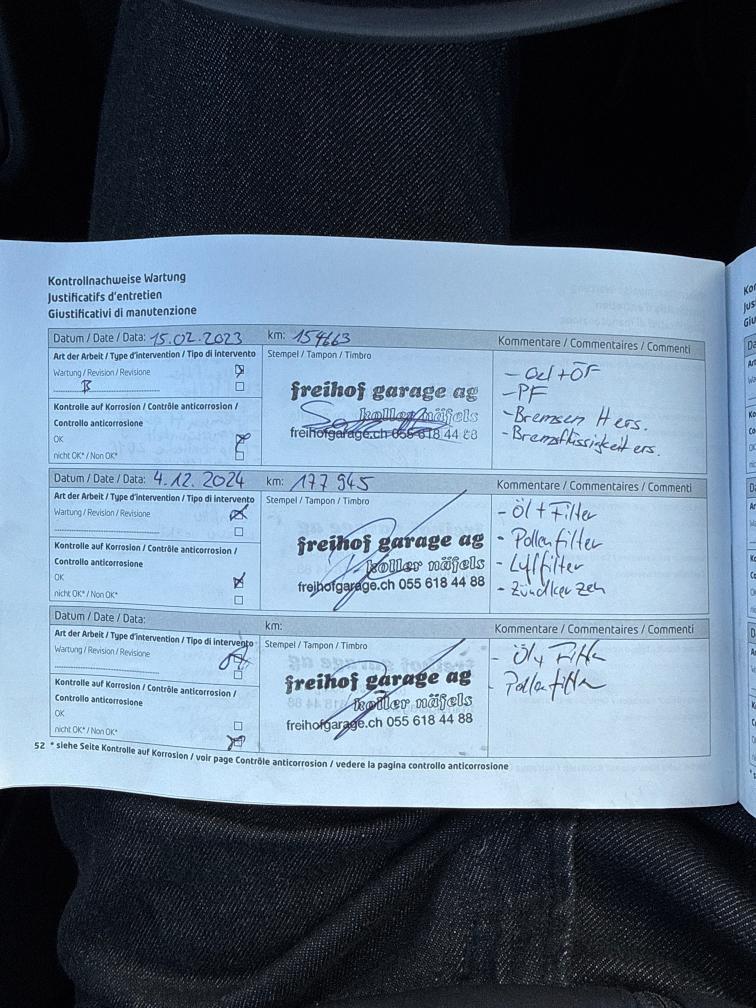 Kontrollnachweise Wartung
Justificatifs d'entretien
Giustificativi di manutenzione
Datum / Date / Data: 15.02.2023 km: 154663 Kommentare / Commentaires / Commenti
Art der Arbeit / Type d'intervention / Tipo di intervento
Wartung / Revision / Revisione
B
Kontrolle auf Korrosion / Contrôle anticorrosion /
Controllo anticorrosione
OK
nicht OK* / Non OK*
Stempel / Tampon / Timbro
freihof garage ag
koller näfels
freihofgarage.ch 055 618 44 88
- Oel + ÖF
- PF
- Bremsen Hers.
- Bremsflüssigkeit ers.
Datum / Date / Data: 4.12.2024 km: 177 945 Kommentare / Commentaires / Commenti
Art der Arbeit / Type d'intervention / Tipo di intervento
Wartung / Revision / Revisione
Kontrolle auf Korrosion / Contrôle anticorrosion /
Controllo anticorrosione
OK
nicht OK* / Non OK*
Stempel / Tampon / Timbro
freihof garage ag
koller näfels
freihofgarage.ch 055 618 44 88
- Öl + Filter
- Pollenfilter
- Luftfilter
- Zündkerzen
Datum / Date / Data: km: Kommentare / Commentaires / Commenti
Art der Arbeit / Type d'intervention / Tipo di intervento
Wartung / Revision / Revisione
Kontrolle auf Korrosion / Contrôle anticorrosion /
Controllo anticorrosione
OK
nicht OK* / Non OK*
Stempel / Tampon / Timbro
freihof garage ag
koller näfels
freihofgarage.ch 055 618 44 88
- Öl + Filter
- Pollenfilter
52 * siehe Seite Kontrolle auf Korrosion / voir page Contrôle anticorrosion / vedere la pagina controllo anticorrosione